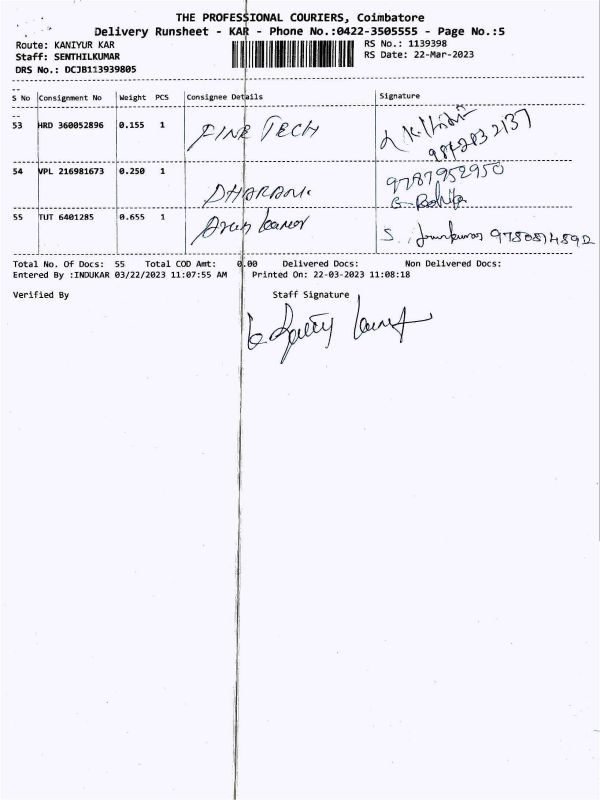 THE PROFESSIONAL COURIERS, Coimbatore
Delivery Runsheet - KAR - Phone No.:0422-3505555 - Page No.:5
Route: KANIYUR KAR RS No.: 1139398
Staff: SENTHILKUMAR RS Date: 22-Mar-2023
DRS No.: DCJB113939805
S No Consignment No Weight PCS Consignee Details Signature
53 HRD 360052896 0.155 1 FINE TECH
54 VPL 216981673 0.250 1 DHARANI 9787952950
G. Rohita
55 TUT 6401285 0.655 1 Arun kumar S.
Total No. Of Docs: 55 Total COD Amt: 0.00 Delivered Docs: Non Delivered Docs:
Entered By :INDUKAR 03/22/2023 11:07:55 AM Printed On: 22-03-2023 11:08:18
Verified By Staff Signature